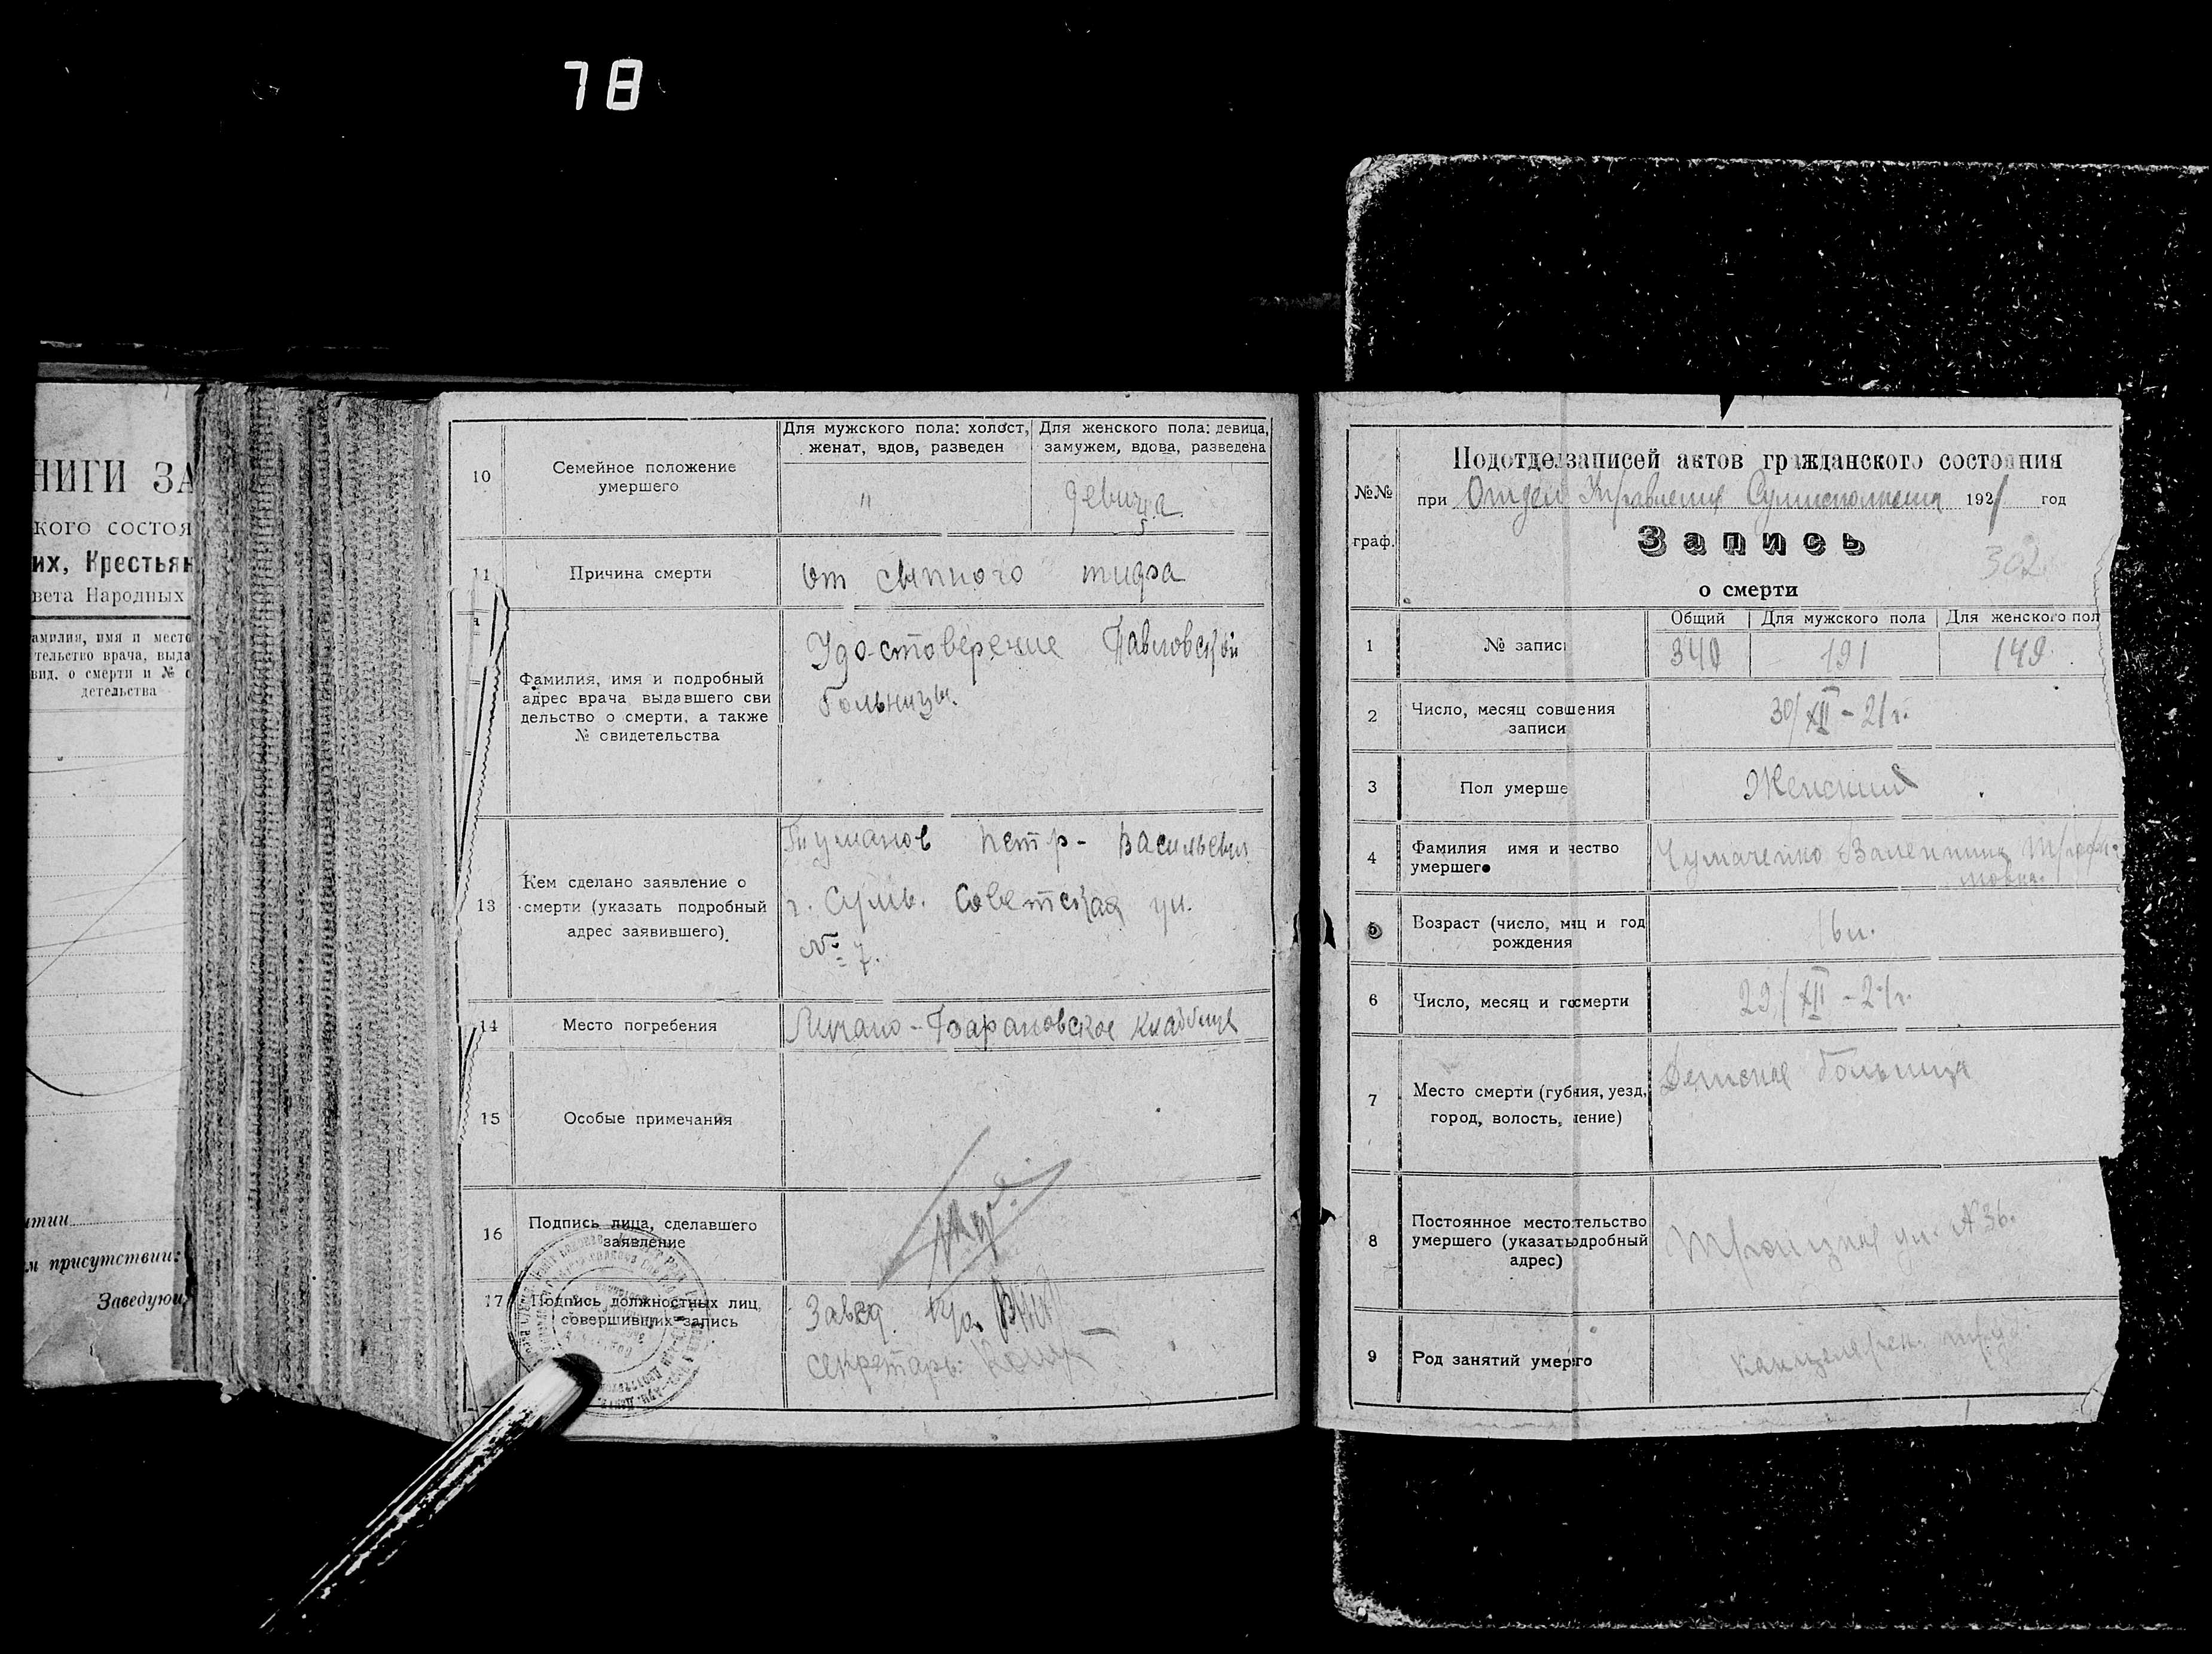 78
НИГИ ЗА
кого состоя
их, Крестьян
вета Народных
амилия, имя и место
тельство врача, выда
вид. о смерти и № с
детельства
тии
м присутствии:
Заведую
10
Семейное положение
умершего
Для мужского пола: холост,
женат, вдов, разведен
Для женского пола: девица,
замужем, вдова, разведена
"
девица
11
Причина смерти
от сыпного тифа
Фамилия, имя и подробный
адрес врача выдавшего сви
дельство о смерти, а также
№ свидетельства
Удостоверение Павловской
больницы.
13
Кем сделано заявление о
смерти (указать подробный
адрес заявившего)
Туманов Петр- Васильевич
г. Сумы. Советская ул.
№ 7.
14
Место погребения
Лучано-Барановское кладбище
15
Особые примечания
16
Подпись лица, сделавшего
заявление
17
Подпись должностных лиц,
совершивших запись
Завед.
секретарь:
№№
граф.
Подотдел записей актов гражданского состояния
при Отдел Управления Сумисполкома 1921 год
Запись
302
о смерти
1
№ запис
Общий
Для мужского пола
Для женского пол
340
191
149
2
Число, месяц сов шения
записи
30/XII - 21 г.
3
Пол умерше
Женский
4
Фамилия имя и чество
умершего
Чумаченко Валентина
5
Возраст (число, мяц и год
рождения
16 л.
6
Число, месяц и го смерти
29/XII - 21 г.
7
Место смерти (губ ния, уезд,
город, волость, ление)
Детская больница
8
Постоянное место тельство
умершего (указать одробный
адрес)
Троицкая ул. № 36.
9
Род занятий умер го
канцелярск. труд.